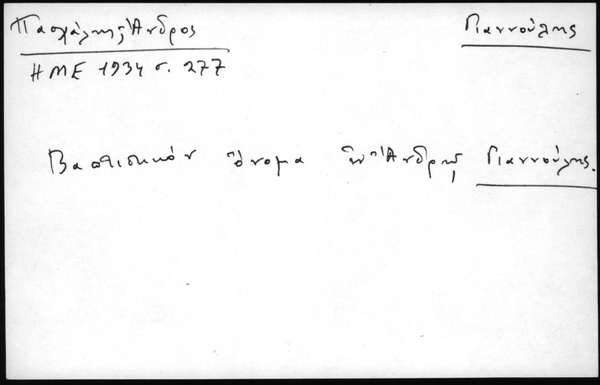 Πασχάλης, Ἄνδρος
Γιαννούλης
ΗΜΕ 1934 σ. 277
Βαπτιστικόν ὄνομα ἐν Ἄνδρῳ Γιαννούλης.